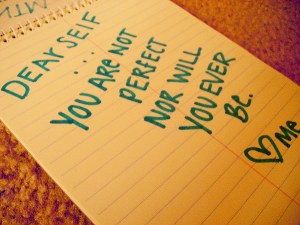 DEAR SELF
...
YOU ARE NOT
PERFECT
NOR WILL
YOU EVER
BE.
♡ Me